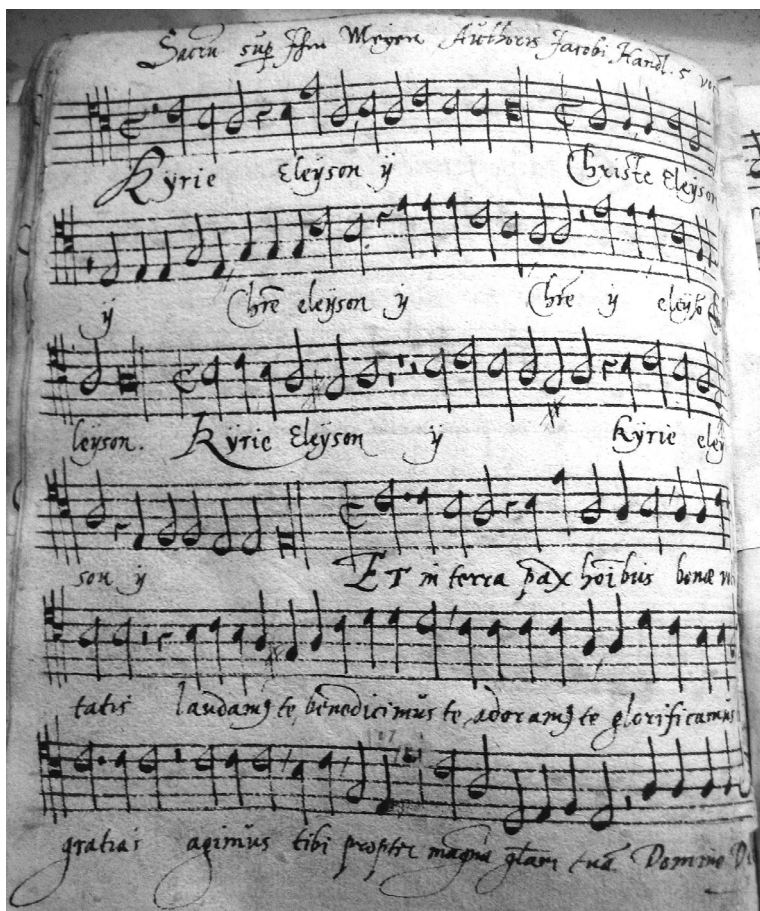 Sacrū sup Ihm Meyen Authoris Jacobi Handl. 5 voc
Kyrie Eleÿson ÿ Christe Eleÿson
ÿ Chrē eleÿson ÿ Chrē ÿ eleÿsō E
leÿson. Kÿrie Eleÿson ÿ Kÿrie eleÿ
son ÿ Et in terra pax hōibus bonæ vo
tatis laudamꝰ te, benedicimus te, adoramꝰ te glorificamus
gratias agimus tibi propter magnā glam tuā Domine D